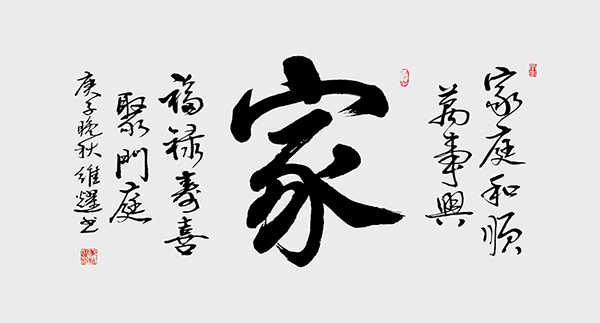 家庭和順
萬事興
家
福禄寿喜
聚門庭
庚子晚秋維耀书